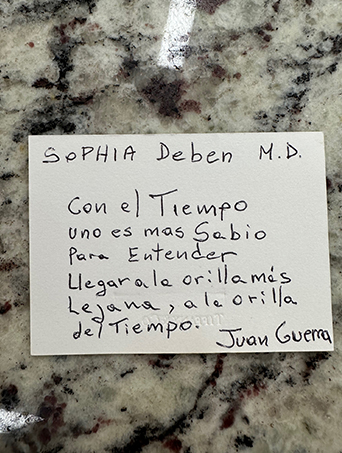 SOPHIA Deben M.D.
Con el Tiempo
uno es mas Sabio
Para Entender
Llegar a la orilla más
Lejana, a la orilla
del Tiempo.
Juan Guerra